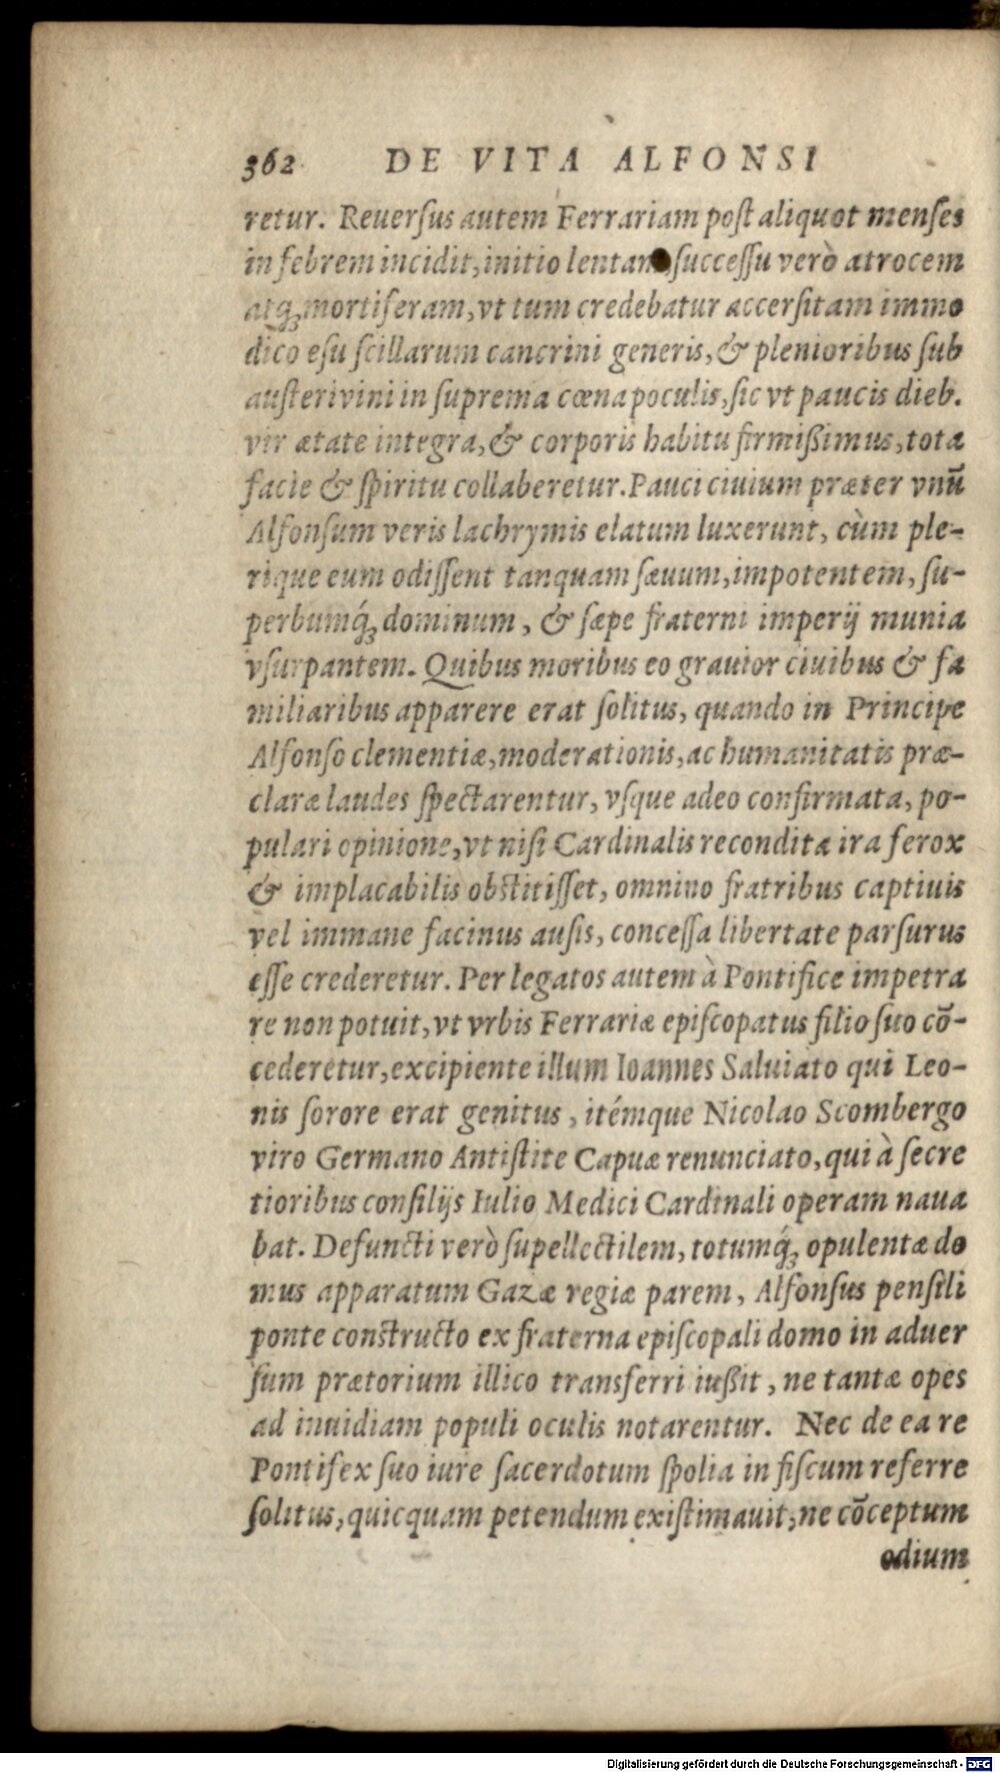 362 DE VITA ALFONSI
retur. Reuerſus autem Ferrariam poſt aliquot menſes
in febrem incidit, initio lentam, ſucceſſu verò atrocem
atq́; mortiferam, vt tum credebatur accerſitam immo
dico eſu ſcillarum cancrini generis, & plenioribus ſub
auſteri vini in ſuprema cœna poculis, ſic vt paucis dieb.
vir ætate integra, & corporis habitu firmißimus, tota
facie & ſpiritu collaberetur. Pauci ciuium præter vnū
Alfonſum veris lachrymis elatum luxerunt, cùm ple-
rique eum odiſſent tanquam ſæuum, impotentem, ſu-
perbumq́; dominum, & ſæpe fraterni imperij munia
vſurpantem. Quibus moribus eo grauior ciuibus & fa
miliaribus apparere erat ſolitus, quando in Principe
Alfonſo clementiæ, moderationis, ac humanitatis præ-
claræ laudes ſpectarentur, vſque adeo confirmata, po-
pulari opinione, vt niſi Cardinalis recondita ira ferox
& implacabilis obſtitiſſet, omnino fratribus captiuis
vel immane facinus auſis, conceſſa libertate parſurus
eſſe crederetur. Per legatos autem à Pontifice impetra
re non potuit, vt vrbis Ferrariæ epiſcopatus filio ſuo cō-
cederetur, excipiente illum Ioannes Saluiato qui Leo-
nis ſorore erat genitus, itémque Nicolao Scombergo
viro Germano Antiſtite Capuæ renunciato, qui à ſecre
tioribus conſilijs Iulio Medici Cardinali operam naua
bat. Defuncti verò ſupellectilem, totumq́; opulentæ do
mus apparatum Gazæ regiæ parem, Alfonſus penſili
ponte conſtructo ex fraterna epiſcopali domo in aduer
ſum prætorium illico transferri iußit, ne tantæ opes
ad inuidiam populi oculis notarentur. Nec de ea re
Pontifex ſuo iure ſacerdotum ſpolia in fiſcum referre
ſolitus, quicquam petendum exiſtimauit, ne cōceptum
odium
Digitalisierung gefördert durch die Deutsche Forschungsgemeinschaft - DFG